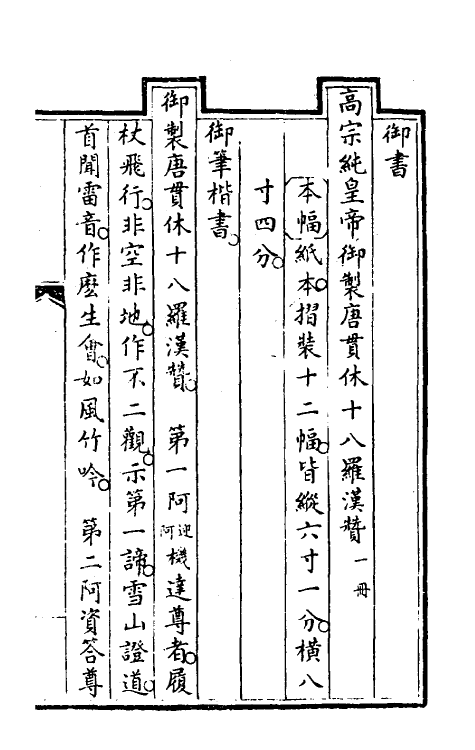 御書
高宗純皇帝御製唐貫休十八羅漢贊一冊
本幅紙本。摺裝十二幅。皆縱六寸一分。橫八
寸四分。
御筆楷書。
御製唐貫休十八羅漢贊。　第一阿迎阿機達尊者。履
杖飛行。非空非地。作不二觀。示第一諦。雪山證道。
首聞雷音。作麼生會。如風竹吟。　第二阿資答尊